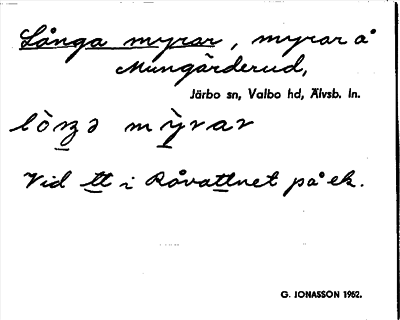 Långa myrar, myrar å
Mungärderud,
Järbo sn, Valbo hd, Älvsb. ln.
lòŋə mỳrar
Vid tt i Råvattnet på ek.
G. JONASSON 1962.